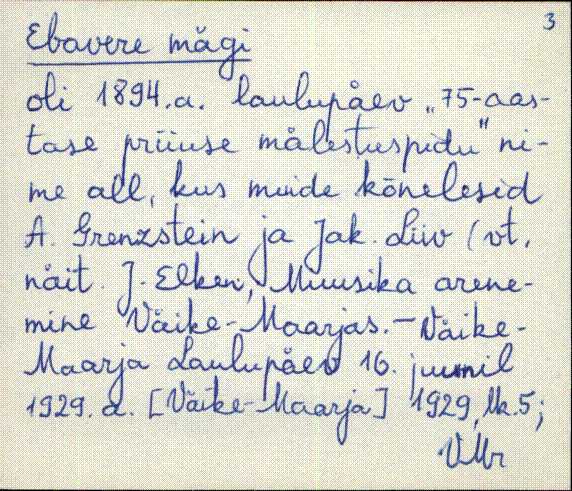 3
Ebavere mägi
oli 1894.a. laulupäev „75-aas-
tase priiuse mälestuspidu" ni-
me all, kus muide kõnelesid
A. Grenzstein ja Jak. Liiv (vt.
näit. J. Elken, Muusika arene-
mine Väike-Maarjas. – Väike-
Maarja Laulupäev 16. juunil
1929. a. [Väike-Maarja] 1929, lk. 5;
VMr